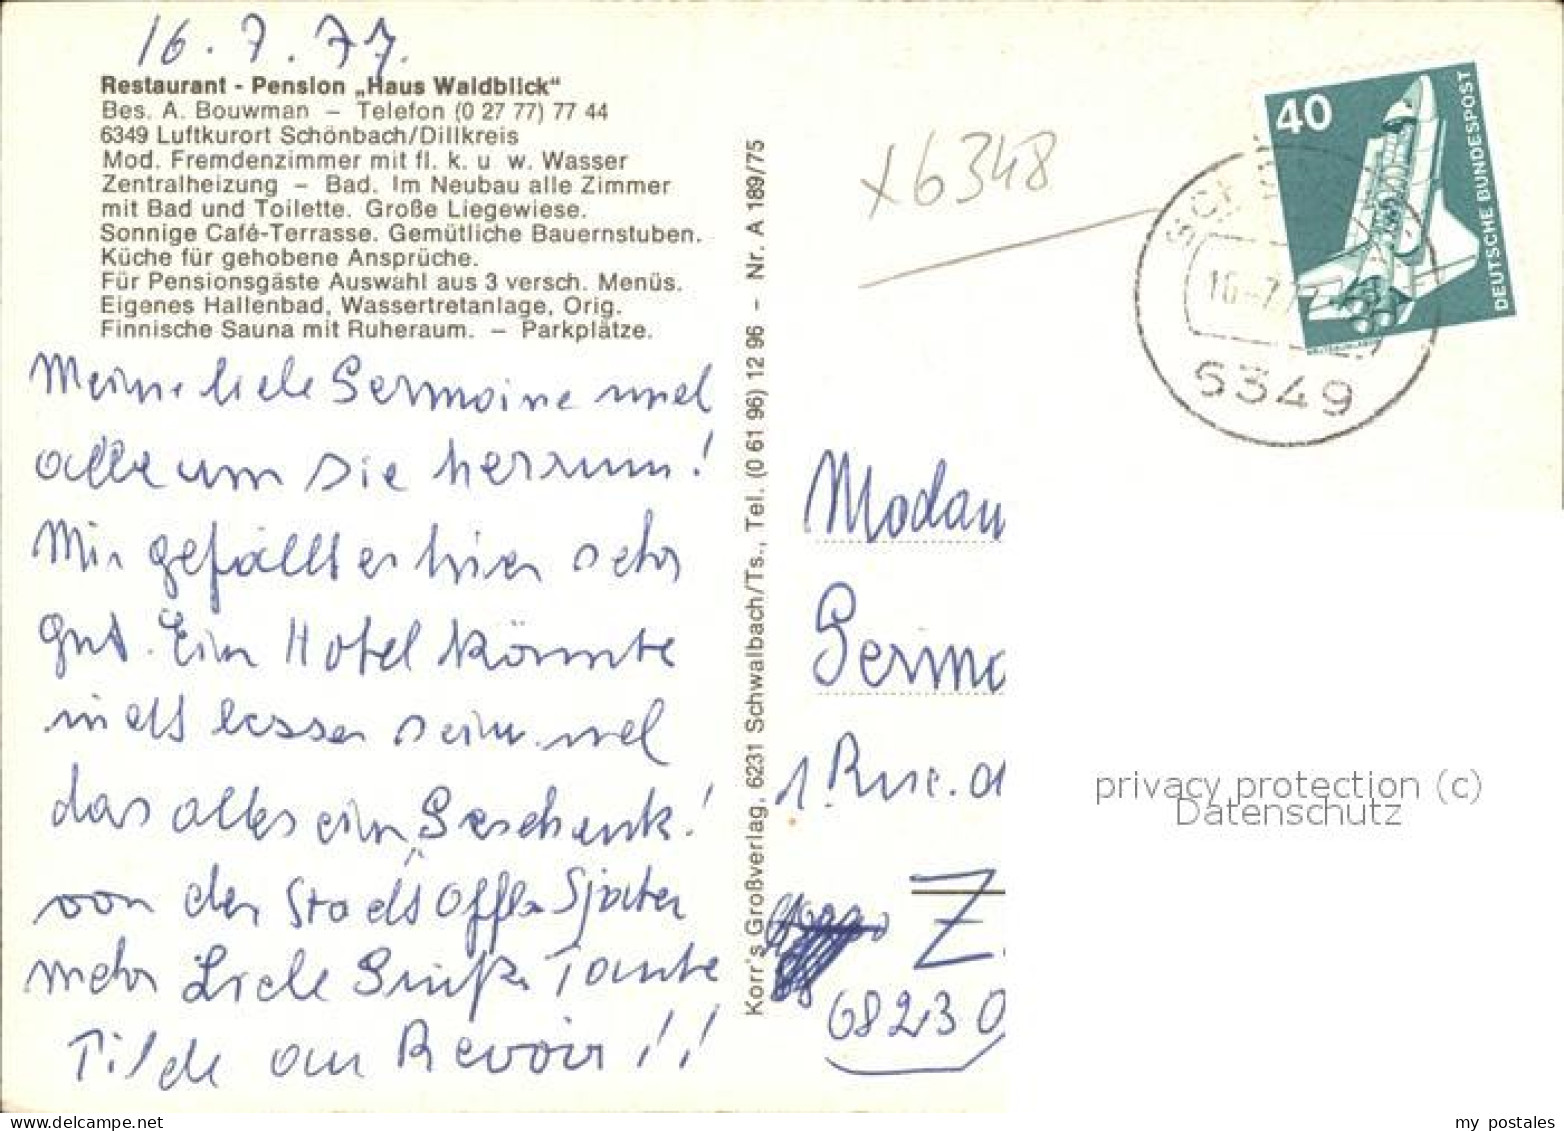 16. 7. 77.
Restaurant - Pension „Haus Waldblick“
Bes. A. Bouwman – Telefon (0 27 77) 77 44
6349 Luftkurort Schönbach/Dillkreis
Mod. Fremdenzimmer mit fl. k. u. w. Wasser
Zentralheizung – Bad. Im Neubau alle Zimmer
mit Bad und Toilette. Große Liegewiese.
Sonnige Café-Terrasse. Gemütliche Bauernstuben.
Küche für gehobene Ansprüche.
Für Pensionsgäste Auswahl aus 3 versch. Menüs.
Eigenes Hallenbad, Wassertretanlage, Orig.
Finnische Sauna mit Ruheraum. – Parkplätze.
Meine liebe Germaine und
alle um Sie herrum!
Mir gefällt es hier sehr
gut. Ein Hotel könnte
nicht besser sein und
das alles ein Geschenk!
von der Stadt Später
mehr Liebe Grüße Tante
Tilde au Revoir!!
Korr's Großverlag, 6231 Schwalbach/Ts., Tel. (0 61 96) 12 96 – Nr. A 189/75
x6348
40
DEUTSCHE BUNDESPOST
16-7.77
6349
Madam
Germa
1. Rue. d
Z.
68230
privacy protection (c)
Datenschutz
my postales